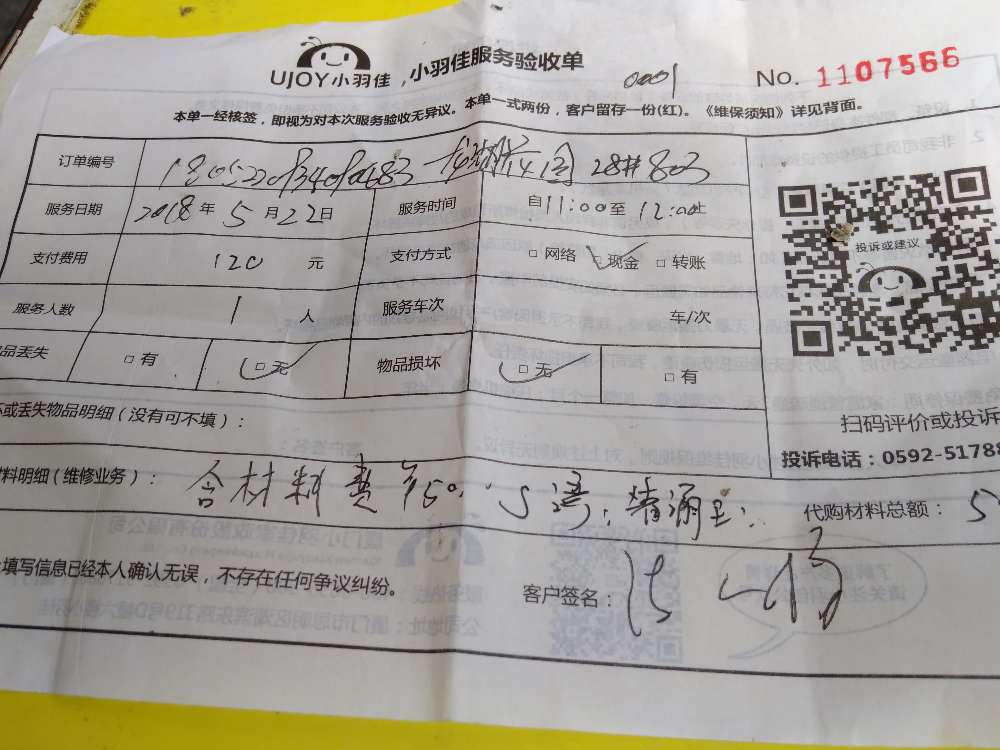 UJOY小羽佳,小羽佳服务验收单
0001
No. 1107566
本单一经核签,即视为对本次服务验收无异议。本单一式两份,客户留存一份(红)。《维保须知》详见背面。
订单编号 28#803
服务日期 2018年5月22日 服务时间 自11:00至12:00止
支付费用 120 元 支付方式 □网络 □现金 □转账
服务人数 1 人 服务车次 车/次
品丢失 □有 □无 物品损坏 □无 □有
投诉或建议
或丢失物品明细(没有可不填):
扫码评价或投诉
投诉电话:0592-5178
料明细(维修业务): 含材料费 S湾, 代购材料总额: 5
填写信息已经本人确认无误,不存在任何争议纠纷。
客户签名: